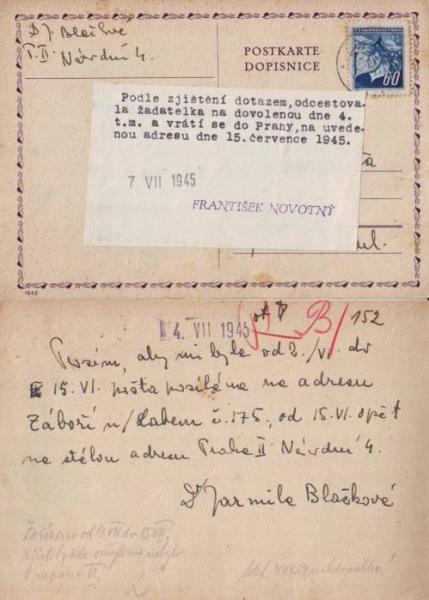 Dr J. Blažkové
P. II. Návrdní 4.
POSTKARTE
DOPISNICE
ČESKOSLOVENSKO
60
Podle zjištění dotazem,odcestova-
la žadatelka na dovolenou dne 4.
t.m. a vrátí se do Prahy,na uvede-
nou adresu dne 15.července 1945.
7 VII 1945
FRANTIŠEK NOVOTNÝ
ul.
4. VII 1945
B/ 152
Prosím, aby mi byla od 2./VI. do
15.VI. pošta posílána na adresu
Záboří n/Labem č.175., od 15.VI. opět
na stálou adresu Praha II Návrdní 4.
Dr Jarmila Blažková
Zařízeno od 4.VII do 15 VII.